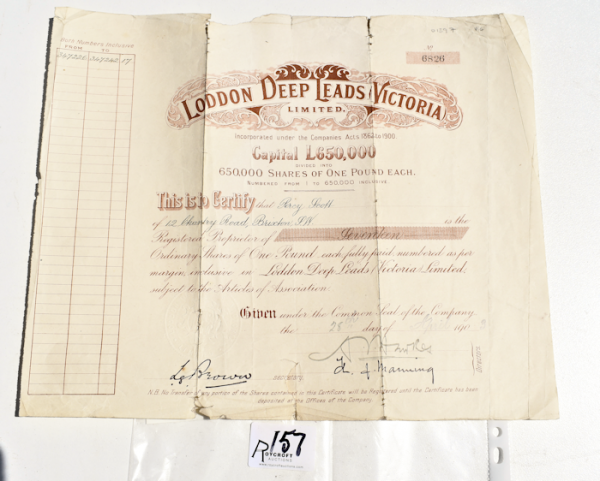 Share Numbers Inclusive
FROM TO
17
No
6826
LODDON DEEP LEADS (VICTORIA)
LIMITED.
Incorporated under the Companies Acts 1862 to 1900.
Capital £650,000
DIVIDED INTO
650,000 SHARES OF ONE POUND EACH.
NUMBERED FROM 1 TO 650,000 INCLUSIVE.
This is to Certify that Scott
of Road, Brixton S.W. is the
Registered Proprietor of Seventeen
Ordinary Shares of One Pound each fully paid numbered as per
margin inclusive in Loddon Deep Leads (Victoria) Limited,
subject to the Articles of Association.
Given under the Common Seal of the Company,
the 28 day of 190
Directors
Brown Secretary. Manning
N.B. No Transfer of any portion of the Shares contained in this Certificate will be Registered until the Certificate has been
deposited at the Offices of the Company.
R 157
ROYCROFT
AUCTIONS